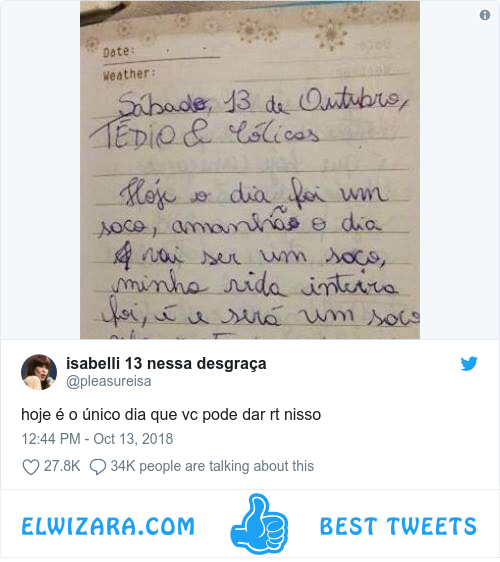 Date:
Weather:
Sábado, 13 de Outubro,
TÉDIO & Cólicas
Hoje o dia foi um
soco, amanhã o dia
vai ser um soco,
minha vida inteira
foi, é e será um soco
isabelli 13 nessa desgraça
@pleasureisa
hoje é o único dia que vc pode dar rt nisso
12:44 PM - Oct 13, 2018
27.8K 34K people are talking about this
ELWIZARA.COM BEST TWEETS